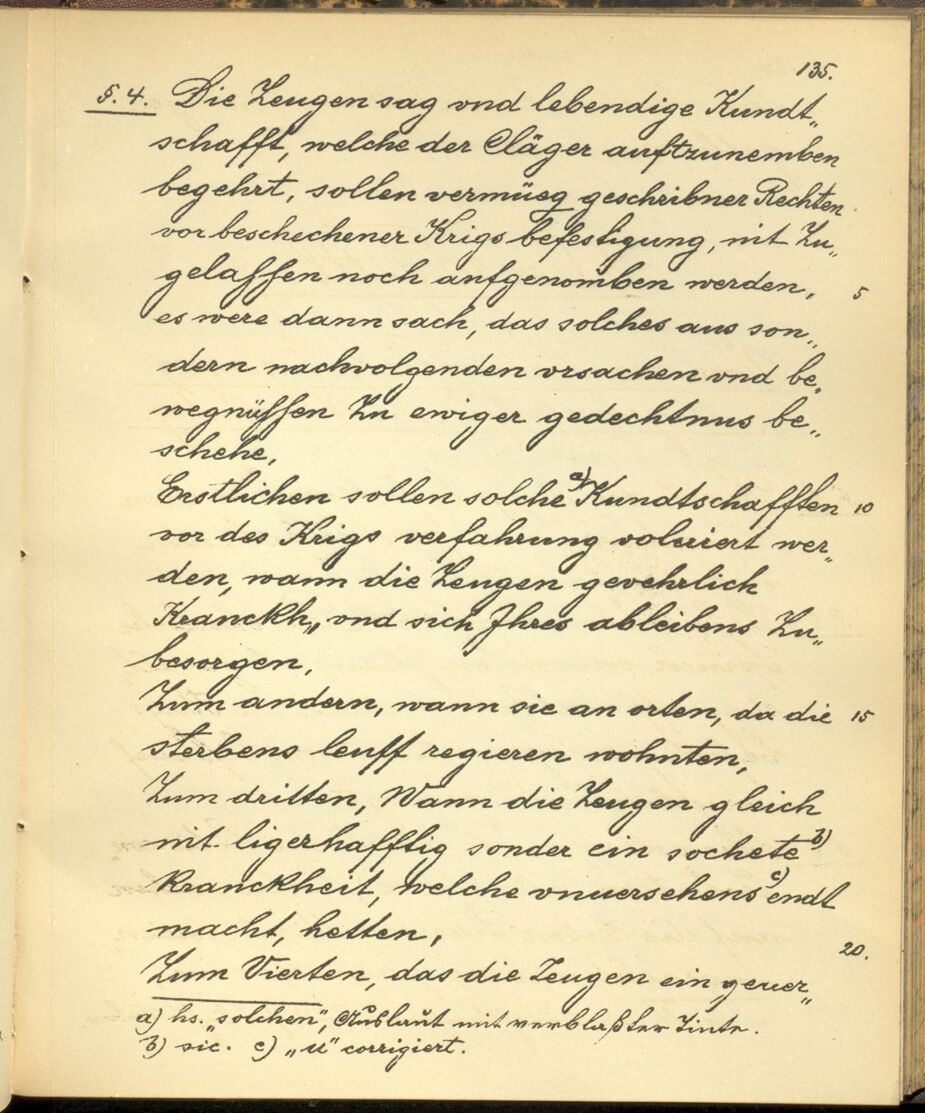 135.
§. 4. Die Zeugen sag vnd lebendige Kundt„
schafft, welche der Cläger auftzunemben
begehrt, sollen vermüeg geschribner Rechten
vor beschechener Krigs befestigung, nit Zu„
gelassen noch aufgenomben werden, 5
es were dann sach, das solches aus son„
dern nachvolgenden vrsachen vnd be„
wegnüssen Zu ewiger gedechtnus be„
schehe,
Erstlichen sollen solche a) Kundtschafften 10
vor des Krigs verfahrung volsiert wer„
den, wann die Zeugen gevehrlich
Kranckh„ vnd sich Jhres ableibens Zu„
besorgen,
Zum andern, wann sie an orten, da die 15
sterbens leuff regieren wohnten,
Zum dritten, Wann die Zeugen gleich
nit ligerhafftig sonder ein sochete b)
kranckheit, welche vnuersehens c) endt
macht, hetten, 20.
Zum Vierten, das die Zeugen ein geuer„
a) hs. „solchen“, Auslaut mit verblaßter Tinte.
b) sic. c) „u“ corrigiert.